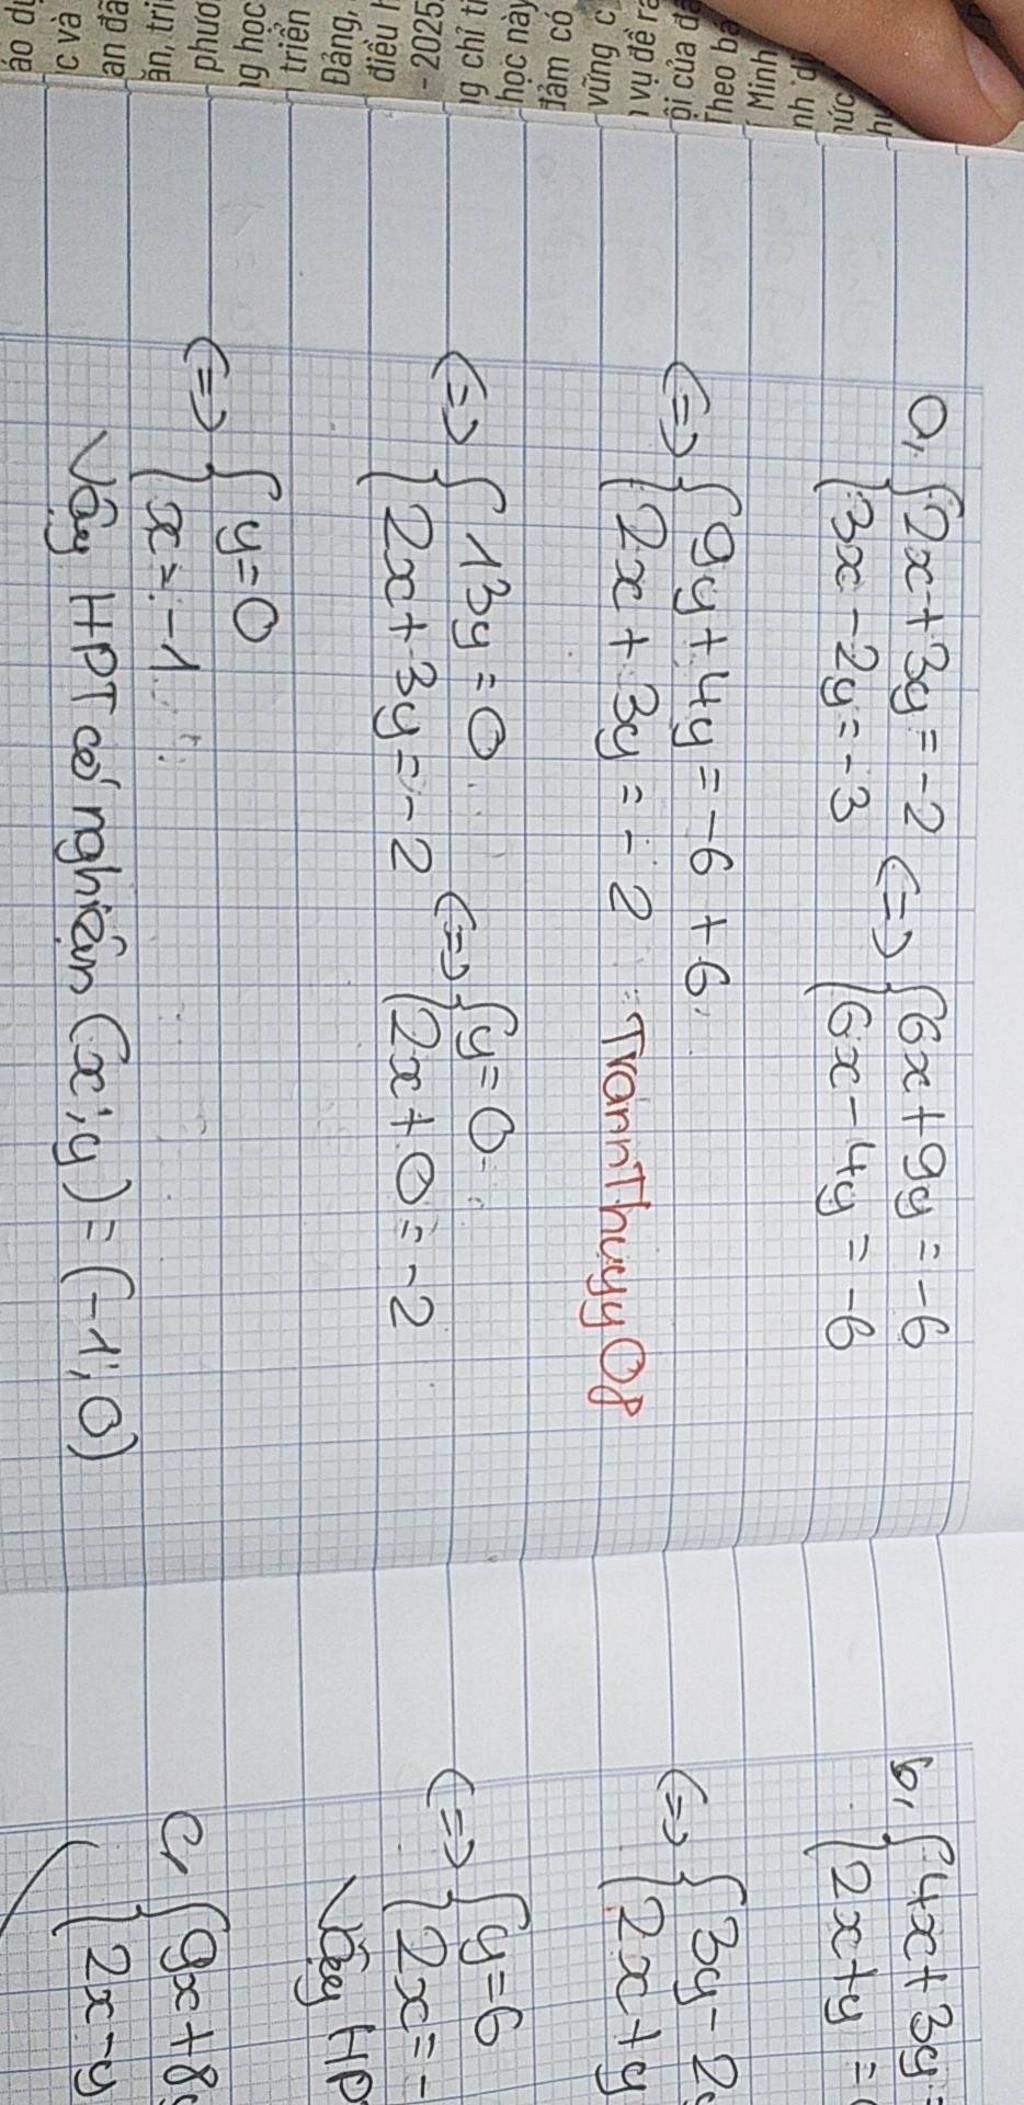 a, { 2x + 3y = -2 <=> { 6x + 9y = -6
{ 3x - 2y = -3 { 6x - 4y = -6
<=> { 9y + 4y = -6 + 6
{ 2x + 3y = -2 TrannThuyy08
<=> { 13y = 0 <=> { y = 0
{ 2x + 3y = -2 { 2x + 0 = -2
<=> { y = 0
{ x = -1
Vậy HPT có nghiệm (x;y) = (-1; 0)
b, { 4x + 3y =
{ 2x + y =
<=> { 3y - 2
{ 2x + y
<=> { y = 6
{ 2x = -
Vậy HP
c, { 9x + 8
{ 2x - y
áo
c và
an đã
phươ
g học
triển
Đảng,
điều
- 2025
g chỉ
học này
đảm có
vững c
vụ đề ra
ội của
Theo
Minh